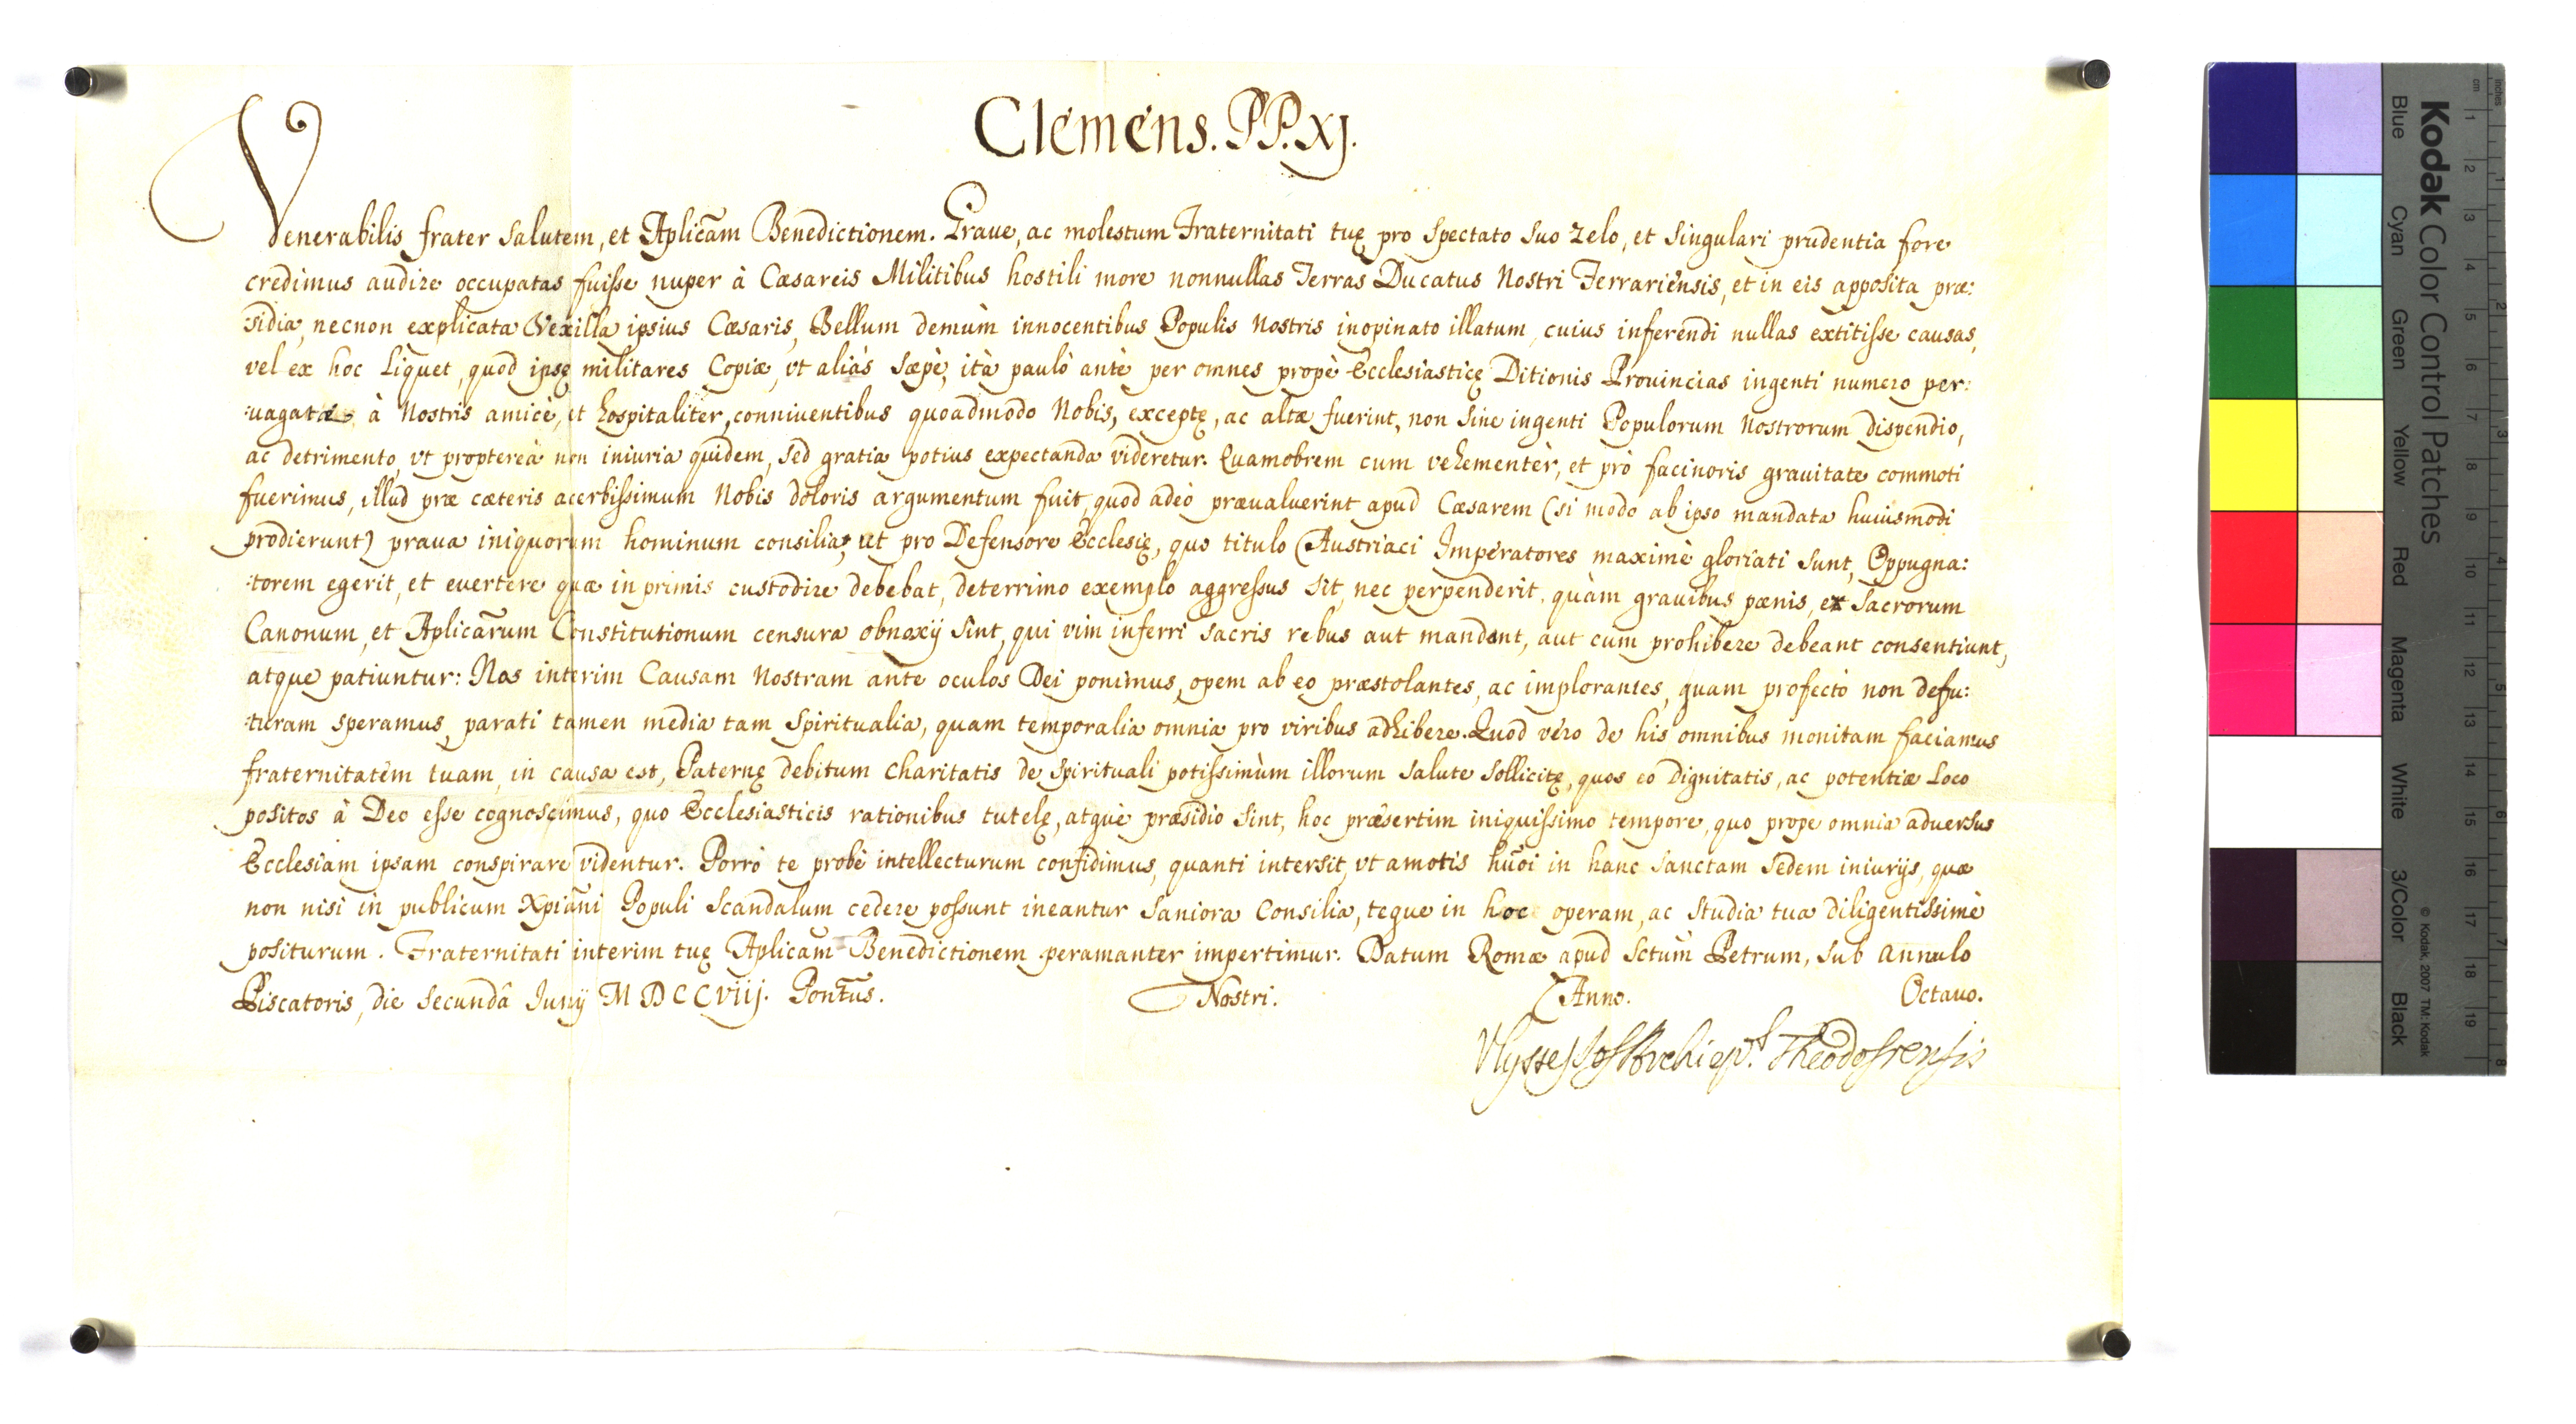 Clemens. PP. XJ.
Venerabilis frater salutem, et Aplicãm Benedictionem. Graue, ac molestum Fraternitati tuę pro spectato suo zelo, et singulari prudentia fore
credimus audire occupatas fuisse nuper à Cæsareis Militibus hostili more nonnullas Terras Ducatus Nostri Ferrariensis, et in eis apposita præ:
:sidia, necnon explicata Vexilla ipsius Cæsaris, Bellum demùm innocentibus Populis Nostris inopinato illatum, cuius inferendi nullas extitisse causas,
vel ex hoc liquet, quod ipsę militares Copiæ, vt aliàs sæpè, ità paulò antè per omnes propè Ecclesiasticę Ditionis Prouincias ingenti numero per:
:uagatæ à Nostris amice, et hospitaliter, conniuentibus quoadmodo Nobis, exceptę, ac altæ fuerint, non sine ingenti Populorum Nostrorum dispendio,
ac detrimento, vt proptereà non iniuria quidem, sed gratia potius expectanda videretur. Quamobrem cum vehementèr, et prò facinoris grauitate commoti
fuerimus, illud præ cæteris acerbissimum Nobis doloris argumentum fuit, quod adeò præualuerint apud Cæsarem (si modo ab ipso mandata huiusmodi
prodierunt) praua iniquorum hominum consilia, ut pro Defensore Ecclesię, quo titulo Austriaci Imperatores maximè gloriati sunt, Oppugna:
:torem egerit, et euertere quæ in primis custodire debebat, deterrimo exemplo aggressus sit, nec perpenderit, quàm grauibus pænis, ex Sacrorum
Canonum, et Aplicãrum Constitutionum censura obnoxij sint, qui vim inferri sacris rebus aut mandant, aut cum prohibere debeant consentiunt,
atque patiuntur: Nos interim Causam Nostram ante oculos Dei ponimus, opem ab eo præstolantes, ac implorantes, quam profectò non defu:
:turam speramus, parati tamen media tam spiritualia, quam temporalia omnia pro viribus adhibere. Quod vero de his omnibus monitam faciamus
fraternitatem tuam, in causa est, Paternę debitum charitatis de spirituali potissimùm illorum salute sollicitę, quos eo dignitatis, ac potentiæ loco
positos à Deo esse cognoscimus, quo Ecclesiasticis rationibus tutelę, atque præsidio sint, hoc præsertim iniquissimo tempore, quo prope omnia aduersus
Ecclesiam ipsam conspirare videntur. Porrò te probè intellecturum confidimus, quanti intersit, vt amotis hũoi in hanc sanctam sedem iniurijs, quæ
non nisi in publicum Xpiãni Populi scandalum cedere possunt ineantur saniora consilia, teque in hoc operam, ac studia tua diligentissimè
positurum. Fraternitati interim tuę Aplicãm Benedictionem peramanter impertimur. Datum Romæ apud Sctũm Petrum, sub Annulo
Piscatoris, die secundâ Iunij MDCCVIIJ. Pontũs. Nostri. Anno. Octauo.
Vlysses Jos Archiepũs Theodosiensis
Kodak Color Control Patches
Blue
Cyan
Green
Yellow
Red
Magenta
White
3/Color
Black
© Kodak, 2007 TM: Kodak
cm 1 2 3 4 5 6 7 8 9 10 11 12 13 14 15 16 17 18 19
inches 1 2 3 4 5 6 7 8